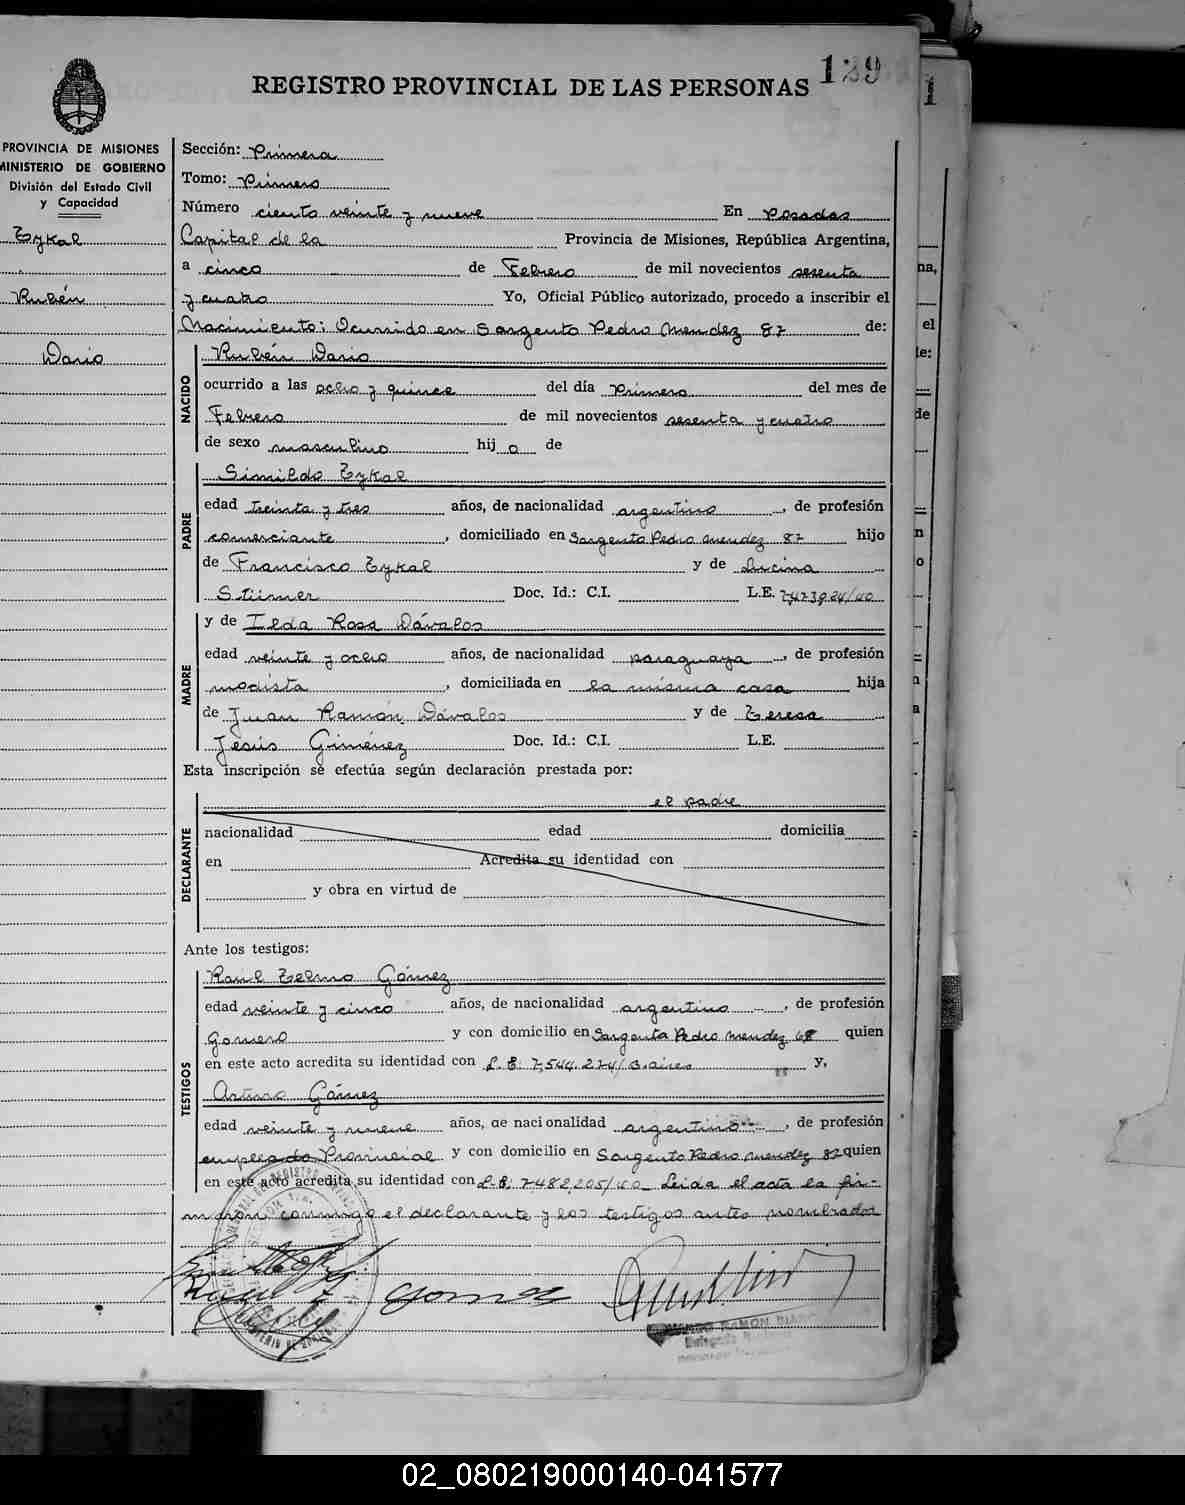 129
REGISTRO PROVINCIAL DE LAS PERSONAS
PROVINCIA DE MISIONES
MINISTERIO DE GOBIERNO
División del Estado Civil
y Capacidad
Zykal
Rubén
Dario
Sección: Primera
Tomo: Primero
Número ciento veinte y nueve En Posadas
Capital de la Provincia de Misiones, República Argentina,
a cinco de Febrero de mil novecientos sesenta
y cuatro Yo, Oficial Público autorizado, procedo a inscribir el
Nacimiento: Ocurrido en Sargento Pedro Mendez 87 de:
NACIDO
Rubén Dario
ocurrido a las ocho y quince del día Primero del mes de
Febrero de mil novecientos sesenta y cuatro
de sexo masculino hij o de
PADRE
Simildo Zykal
edad treinta y tres años, de nacionalidad argentino, de profesión
comerciante, domiciliado en Sargento Pedro Mendez 87 hijo
de Francisco Zykal y de Lucina
Stürmer Doc. Id.: C.I. L.E.
MADRE
y de Ilda Rosa Dávalos
edad veinte y ocho años, de nacionalidad paraguaya, de profesión
modista, domiciliada en la misma casa hija
de Juan Ramón Dávalos y de Teresa
Jesús Giménez Doc. Id.: C.I. L.E.
Esta inscripción se efectúa según declaración prestada por:
DECLARANTE
el padre
nacionalidad edad domicilia
en Acredita su identidad con
y obra en virtud de
Ante los testigos:
TESTIGOS
Raúl Telmo Gómez
edad veinte y cinco años, de nacionalidad argentino, de profesión
Gomero y con domicilio en Sargento Pedro Mendez 68 quien
en este acto acredita su identidad con L.E: 7,544.274/B.aires y,
Arturo Gómez
edad veinte y nueve años, de nacionalidad argentino, de profesión
empleado Provincial y con domicilio en Sargento Pedro Mendez 82 quien
en este acto acredita su identidad con L.E: 7482,205/40_ Leída el acta la fir-
maron conmigo el declarante y los testigos antes nombrados
Gomez
RAMON
02_080219000140-041577